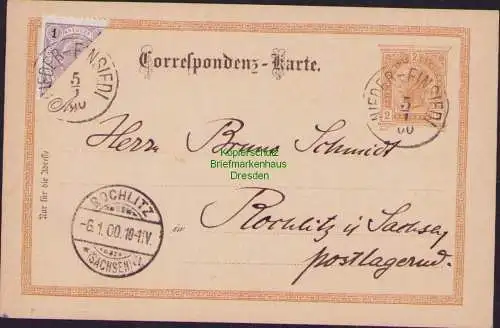 1
NIEDER-EINSIEDL
5
1
00
Correspondenz-Karte.
2
2
NIEDER-EINSIEDL
5
1
00
Herrn Bruno Schmidt
Kopierschutz
Briefmarkenhaus
Dresden
Nur für die Adresse
ROCHLITZ
-6.1.00.10-11V.
(SACHSEN)
in
Rochlitz in Sachsen
postlagernd.